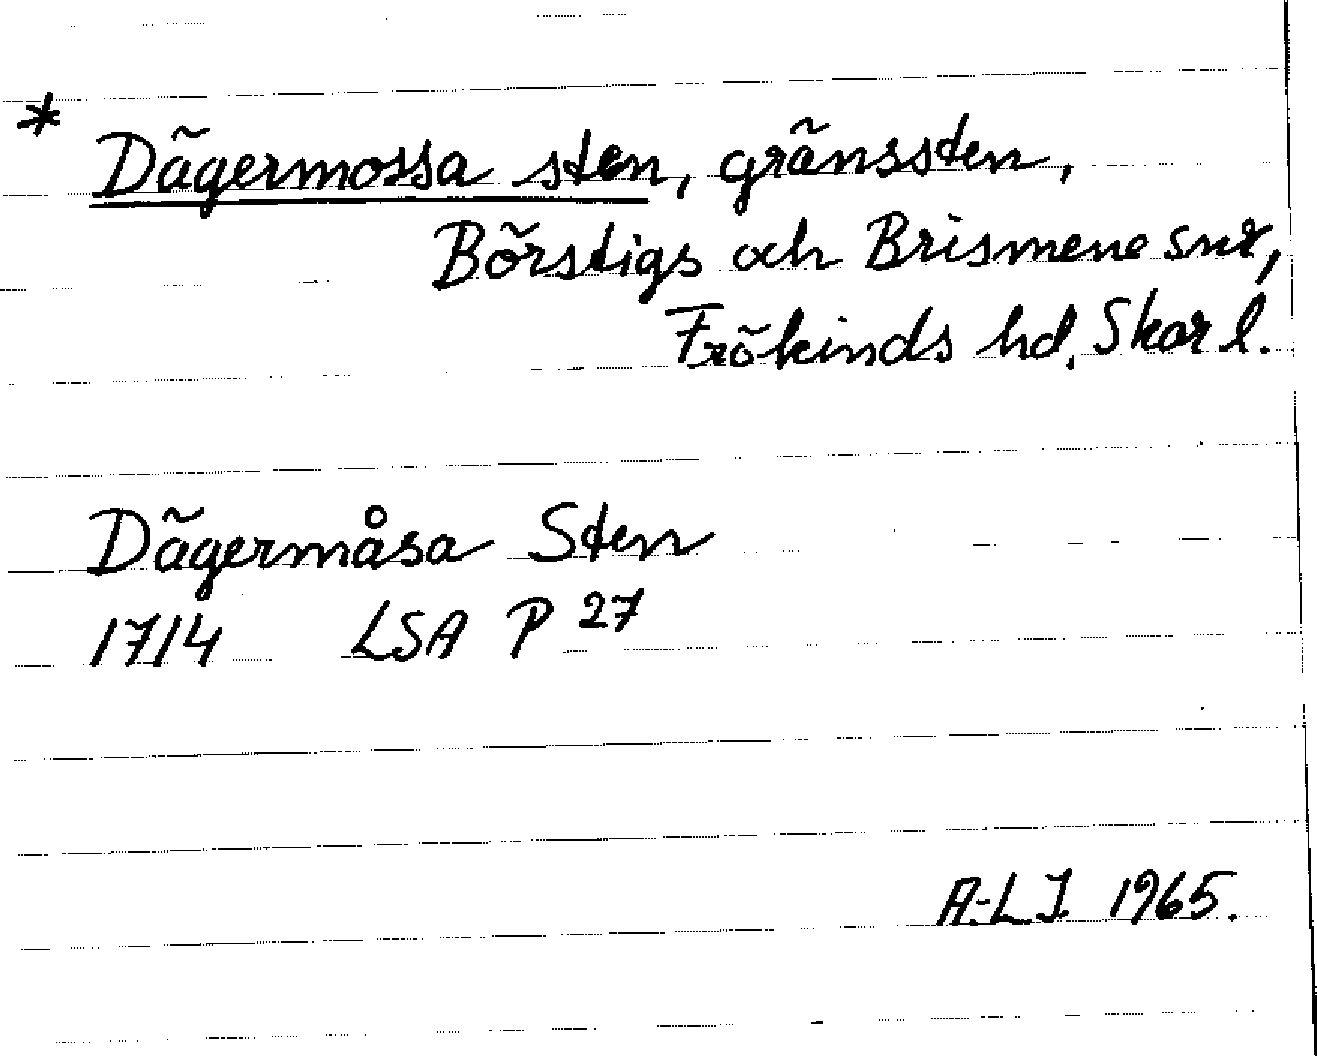 * Dägermossa sten, gränssten,
Börstigs och Brismene snr,
Frökinds hd, Skar l.
Dägermåsa Sten
1714 LSA P 27
A.-L.J. 1965.